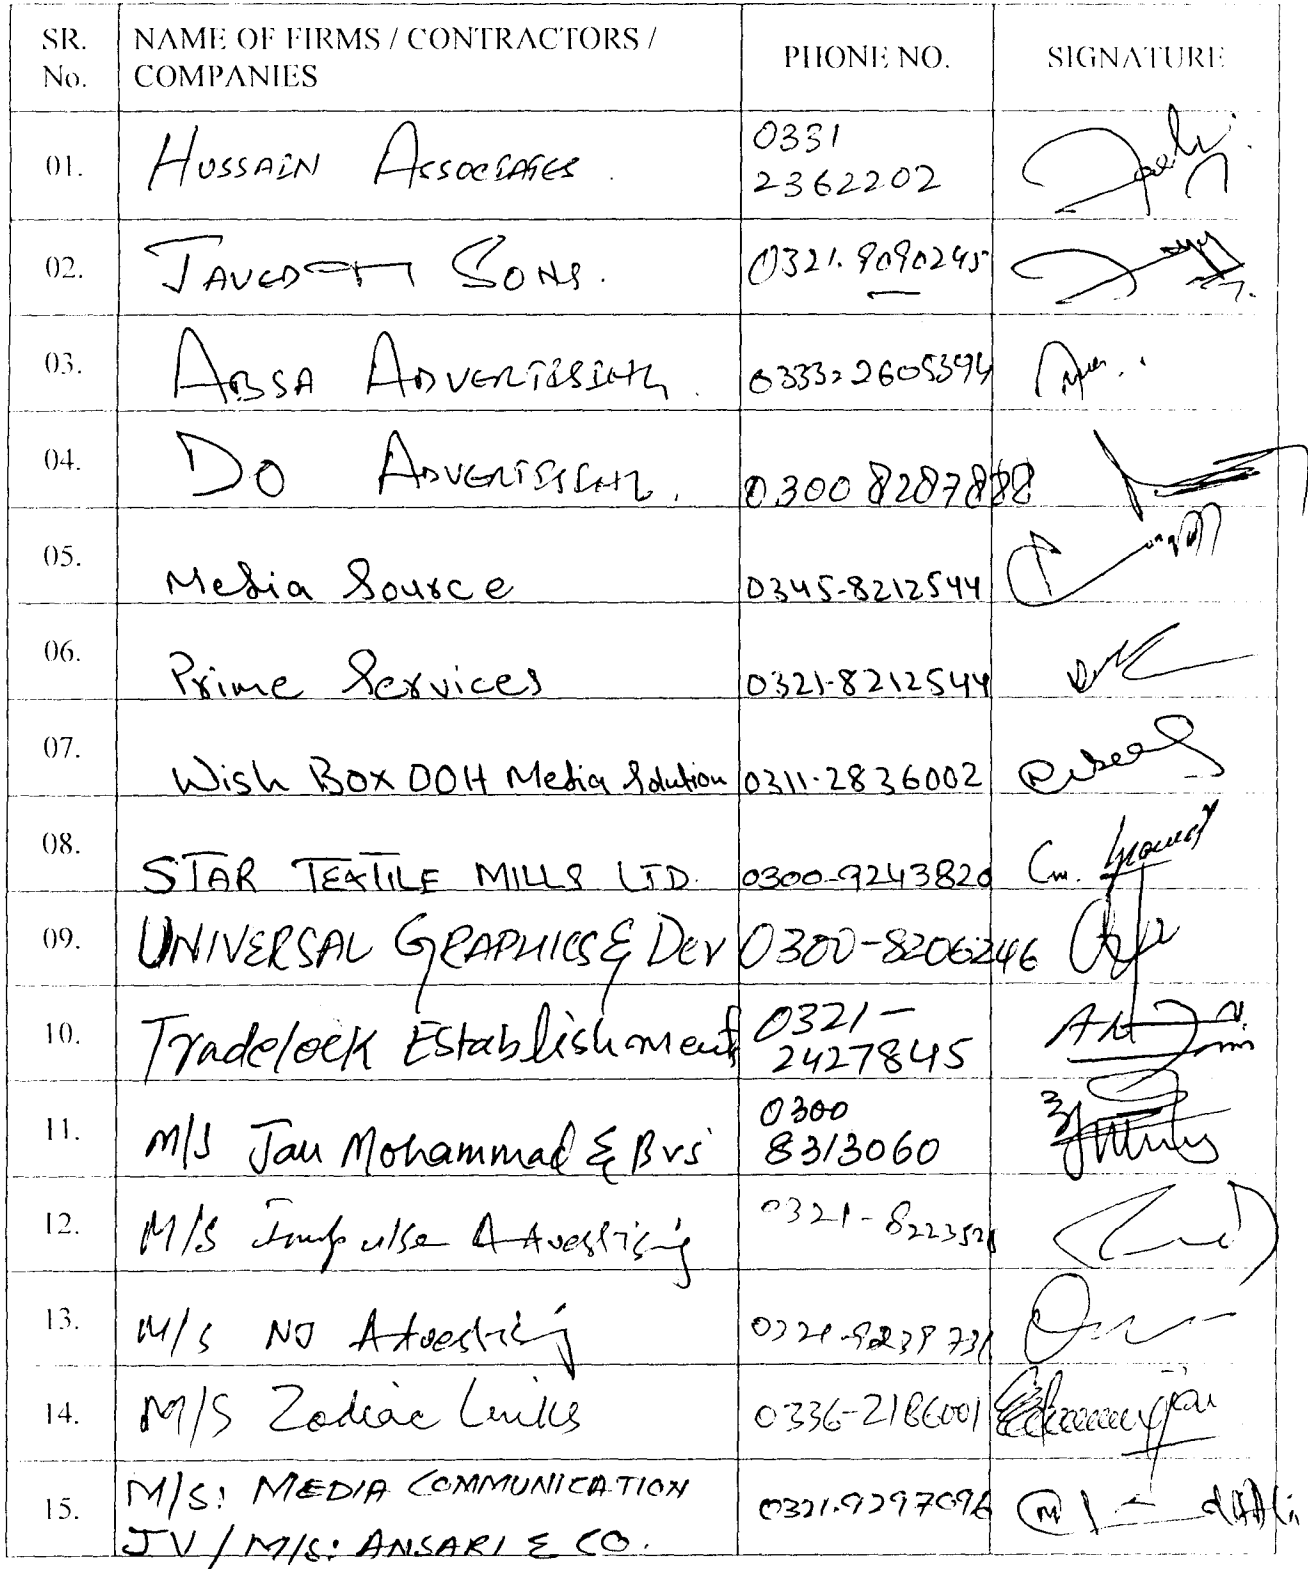 SR. NAME OF FIRMS / CONTRACTORS / PHONE NO. SIGNATURE
No. COMPANIES
01. HUSSAIN ASSOCIATES. 0331
2362202
02. JAVED SONS. 0321.9090245
03. ABSA ADVERTISSING. 0333-2605394
04. DO ADVERTISSING. 0300 8287888
05. Media Source 0345-8212544
06. Prime Services 0321-8212544
07. Wish Box OOH Media Solution 0311-2836002
08. STAR TEXTILE MILLS LTD. 0300-9243820
09. UNIVERSAL GRAPHICS & DEV 0300-8206246
10. Tradelock Establishment 0321-
2427845
11. M/S Jan Mohammad & Brs 0300
8313060
12. M/S Impulse Advertising
13. M/S NJ Advertising
14. M/S Zodiac Links 0336-2186001
15. M/S: MEDIA COMMUNICATION 0321.9297096
JV / M/S: ANSARI & CO.